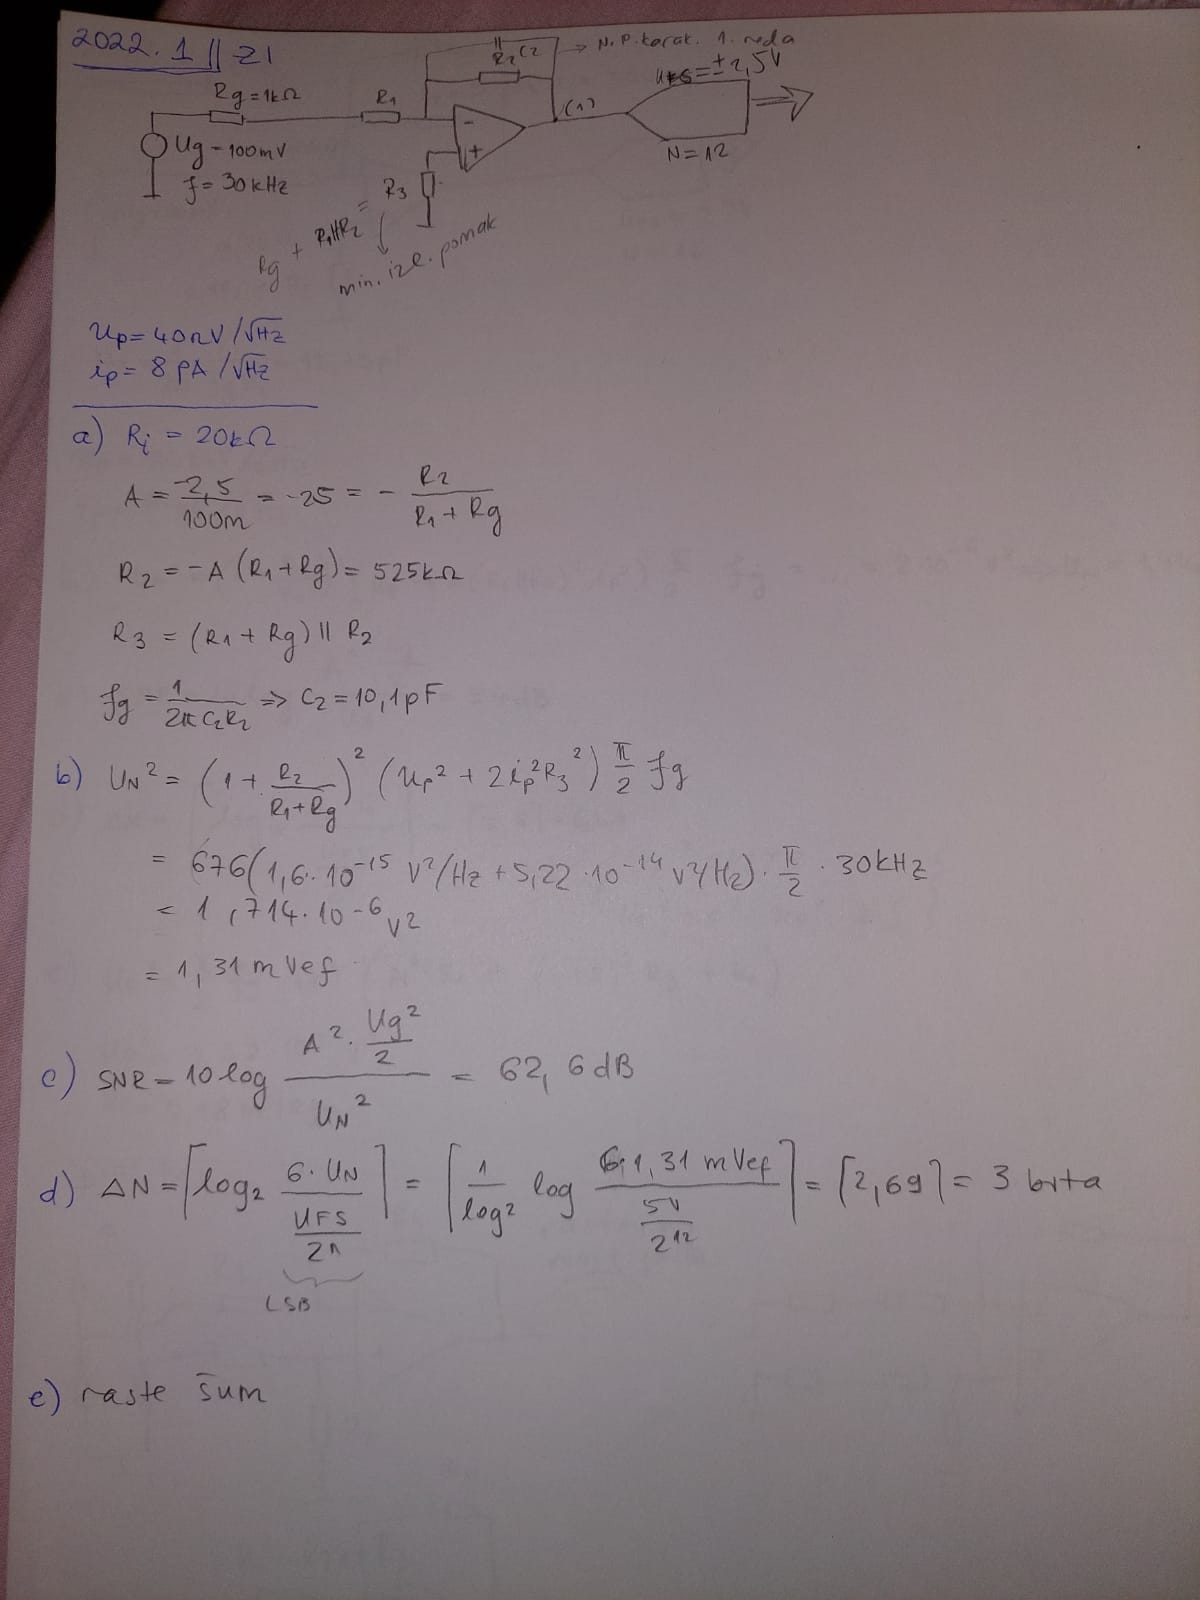 2022. 1 || ZI
R2 C2 → N.P. karak. 1. reda
UFS = ± 2,5V
Rg = 1kΩ
R1
(1)
Ug - 100mV
f = 30kHz
N = 12
- +
Rg + R1||R2 = R3
min. izl. pomak
Up = 40nV/√Hz
ip = 8 pA/√Hz
a) Ri = 20kΩ
A = -2,5/100m = -25 = - R2/(R1 + Rg)
R2 = -A (R1 + Rg) = 525kΩ
R3 = (R1 + Rg) || R2
fg = 1/(2π C2R2) => C2 = 10,1pF
b) UN² = (1 + R2/(R1+Rg))² (Up² + 2ip²R3²) π/2 fg
= 676(1,6·10⁻¹⁵ V²/Hz + 5,22·10⁻¹⁴ V²/Hz) · π/2 · 30kHz
= 1,714·10⁻⁶ V²
= 1,31 mVef
c) SNR = 10 log (A² · Ug²/2)/UN² = 62,6dB
d) ΔN = ⌈log₂ 6·UN/(UFS/2ⁿ)⌉ = ⌈1/log2 log 6·1,31 mVef/(5V/2¹²)⌉ = ⌈2,69⌉ = 3 bita
LSB
e) raste šum